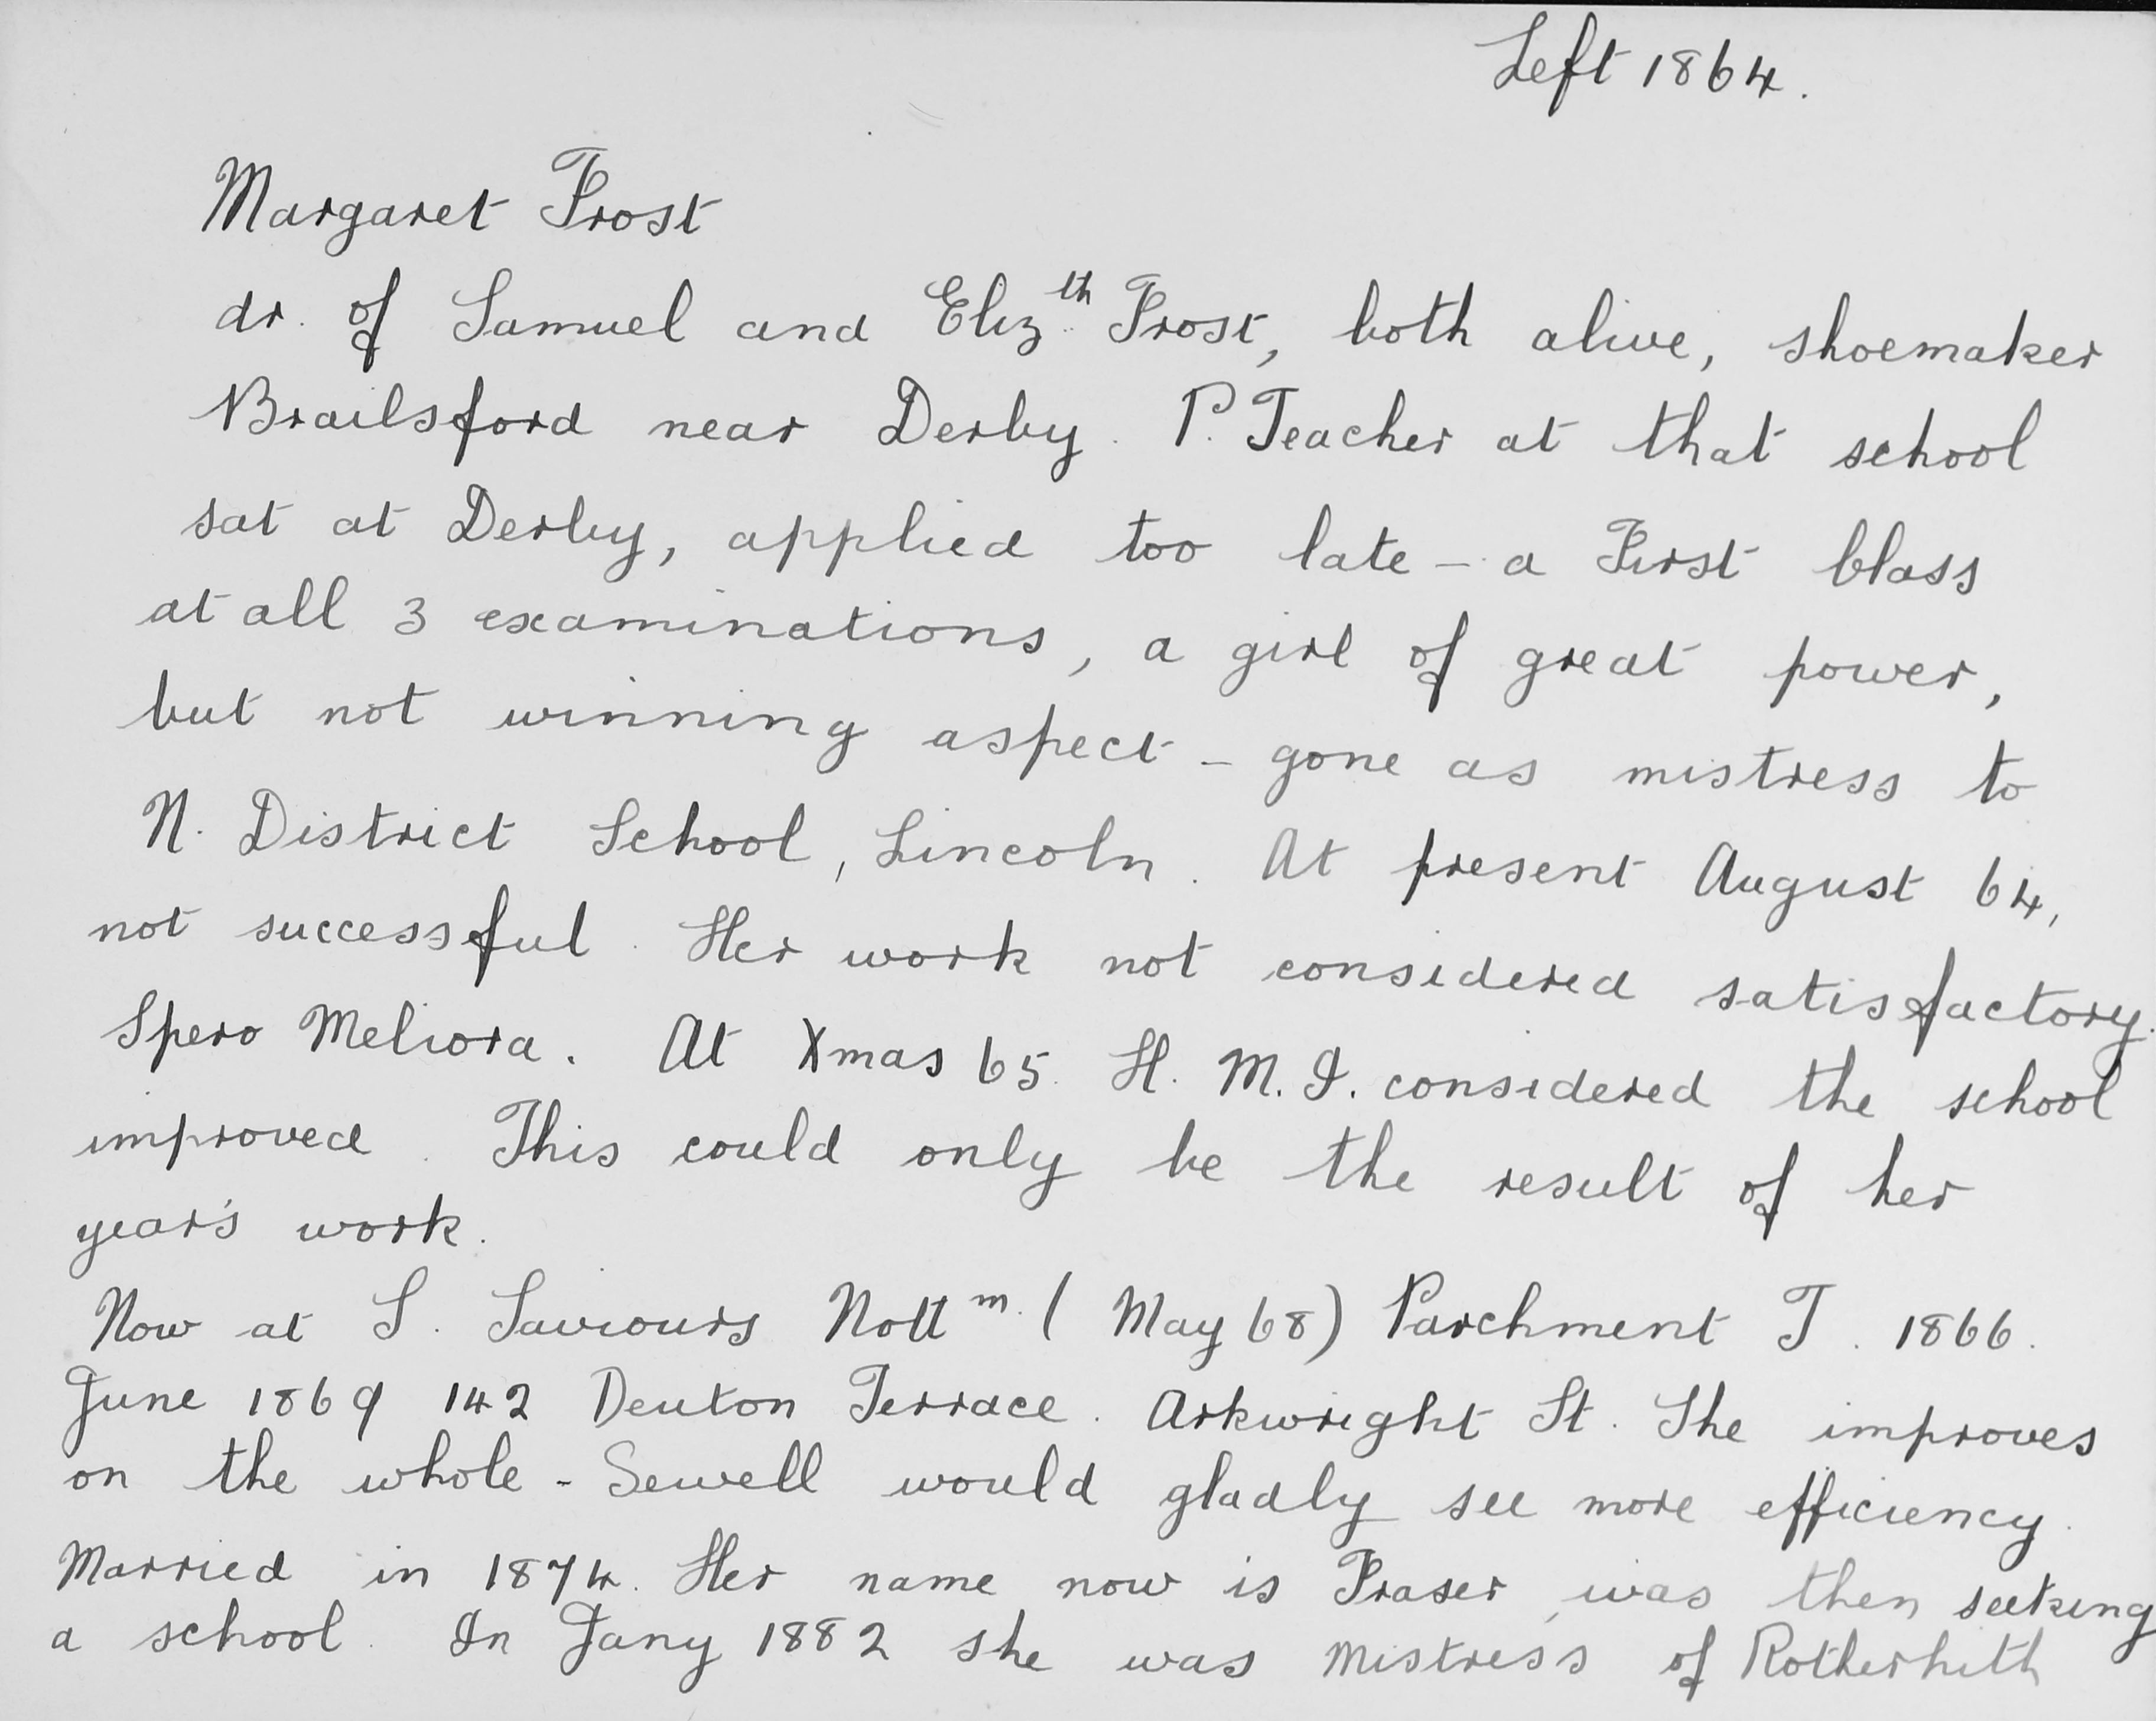 Left 1864.
Margaret Frost
dr. of Samuel and Eliz.th Frost, both alive, shoemaker
Brailsford near Derby. P. Teacher at that school
sat at Derby, applied too late - a First Class
at all 3 examinations, a girl of great power,
but not winning aspect - gone as mistress to
N. District School, Lincoln. At present August 64,
not successful. Her work not considered satisfactory.
Spero Meliora. At Xmas 65. H. M. I. considered the school
improved. This could only be the result of her
year's work.
Now at S. Saviours Nottm. (May 68) Parchment T. 1866.
June 1869 142 Denton Terrace. Arkwright St. She improves
on the whole - Sewell would gladly see more efficiency.
Married in 1874. Her name now is Fraser, was then seeking
a school. In Jany 1882 she was mistress of Rotherhith